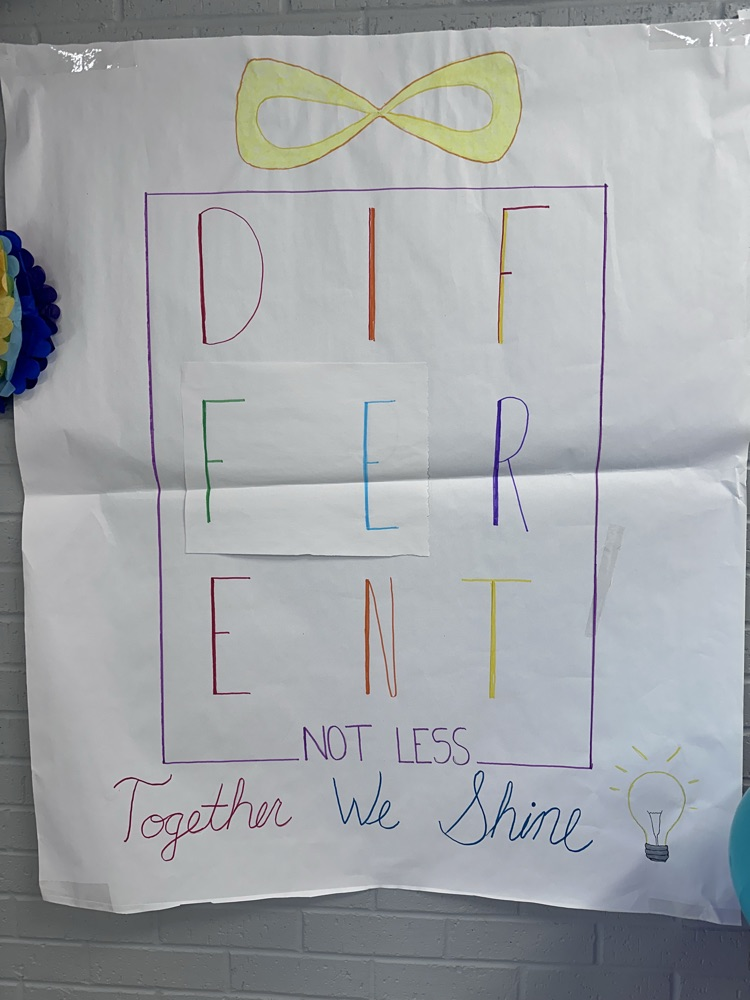 D I F
F E R
E N T
NOT LESS
Together We Shine